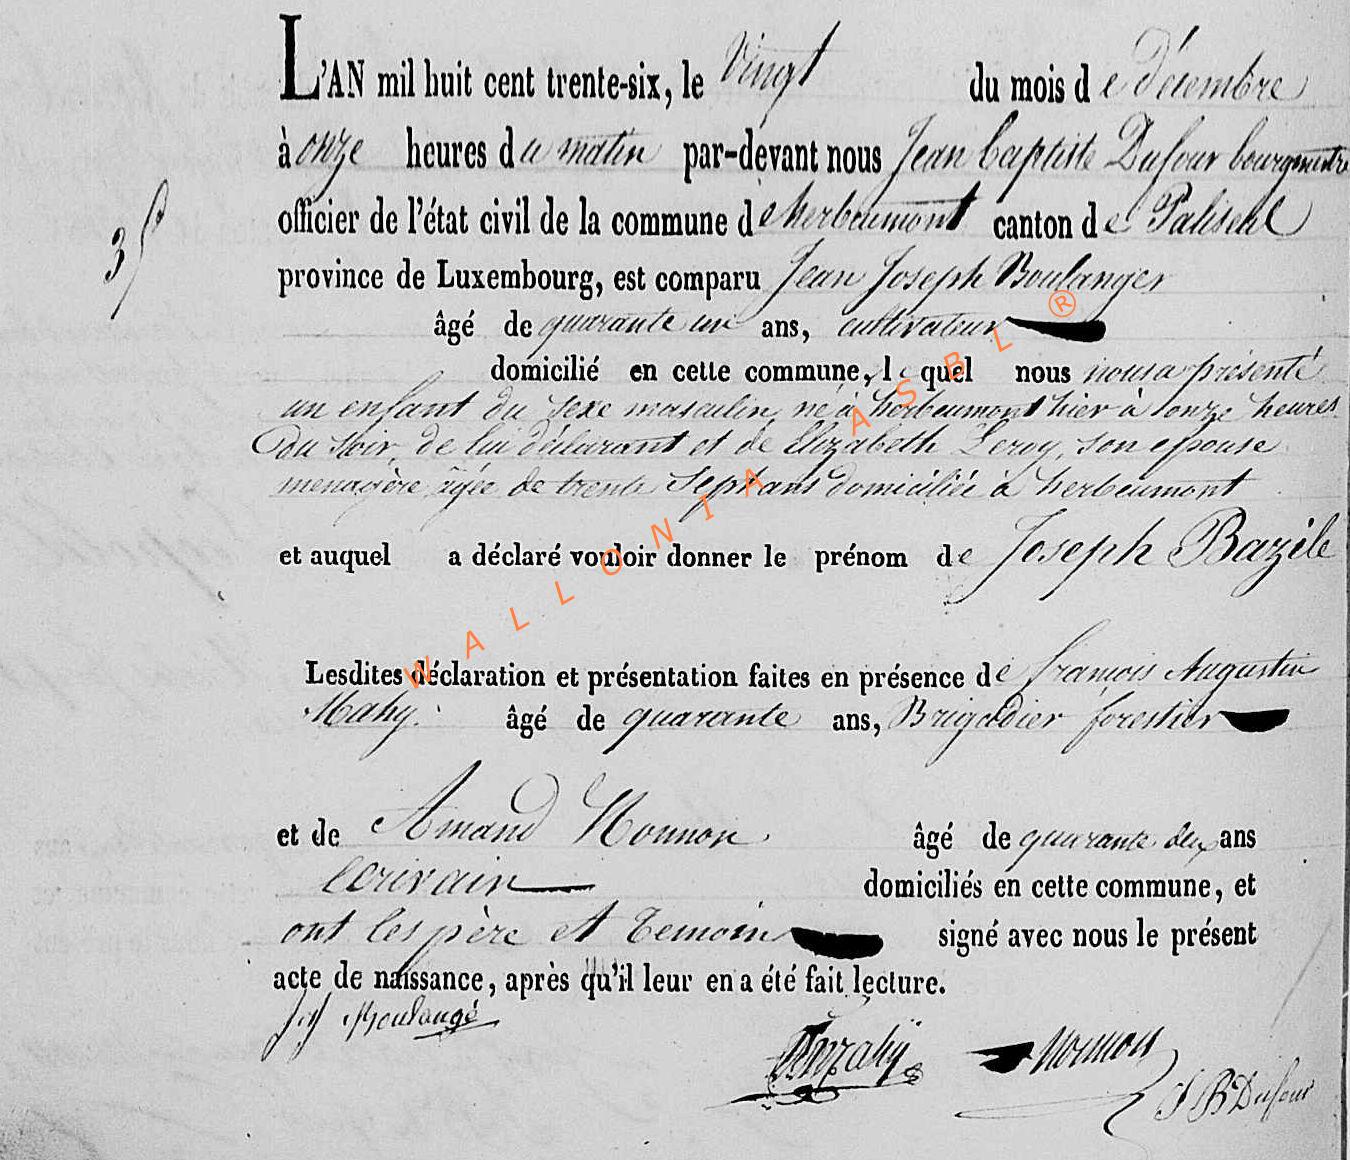 L'AN mil huit cent trente-six, le Vingt du mois de décembre
à onze heures du matin par-devant nous Jean baptiste Dufour bourgmestre
officier de l'état civil de la commune de herbeumont canton de Paliseul
35
province de Luxembourg, est comparu Jean Joseph Boulanger
âgé de quarante un ans, cultivateur
domicilié en cette commune, le quel nous nous a présenté
un enfant du sexe masculin, né à herbeumont hier à onze heures
du soir, de lui déclarant et de Elizabeth Leroy, son epouse
menagère âgée de trente sept ans domiciliée à herbeumont
et auquel a déclaré vouloir donner le prénom de Joseph Bazile
Lesdites déclaration et présentation faites en présence de françois Augustin
Mahy. âgé de quarante ans, Brigadier forestier
et de Amand Nonnon âgé de quarante deux ans
écrivain domiciliés en cette commune, et
ont les père et temoins signé avec nous le présent
acte de naissance, après qu'il leur en a été fait lecture.
JJ Boulangé
Mahy Nonnon
JB Dufour
WALLONIA ASBL ®